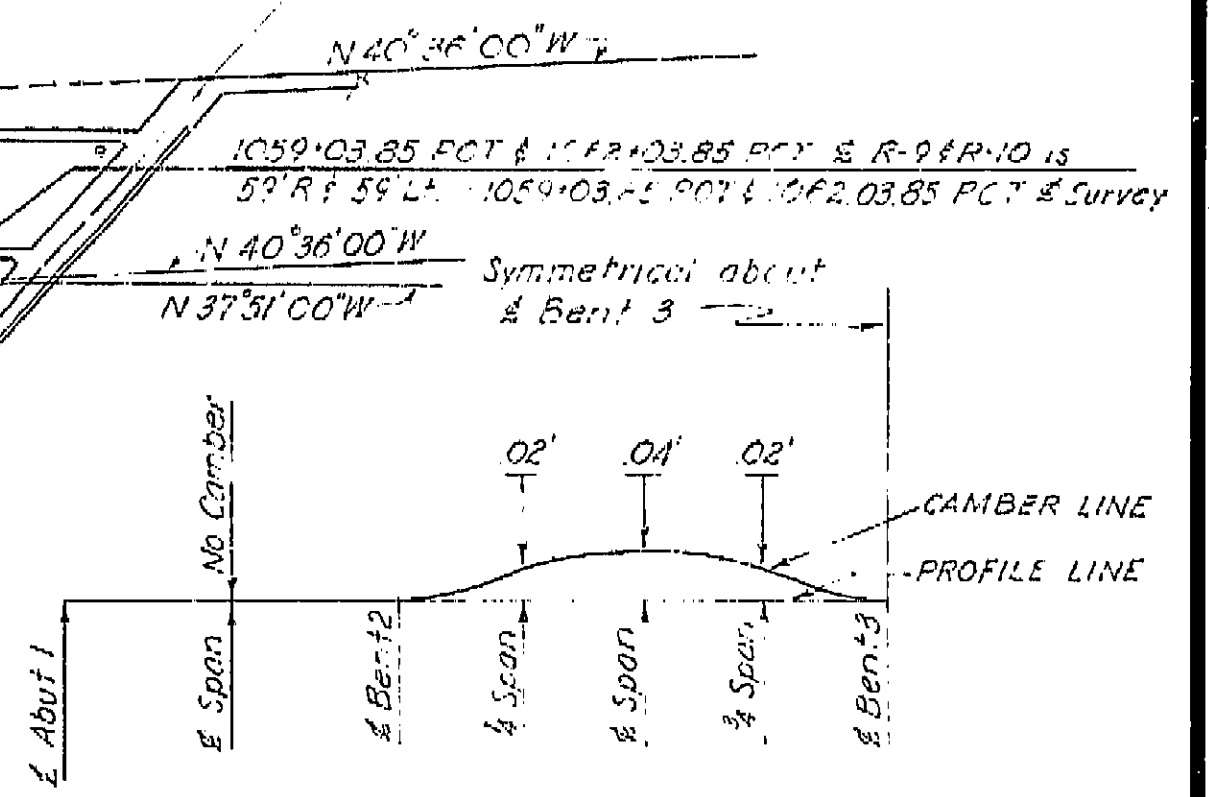 N 40°36'00"W
1059+03.85 POT & 1062+03.85 POT ℄ R-9 & R-10 is
59' Rt & 59' Lt. 1059+03.85 POT & 1062.03.85 POT ℄ Survey
N 40°36'00"W
N 37°51'00"W
Symmetrical about
℄ Bent 3
No Camber
.02'
.04'
.02'
CAMBER LINE
PROFILE LINE
℄ Abut 1
℄ Span
℄ Bent 2
¼ Span
℄ Span
¾ Span
℄ Bent 3